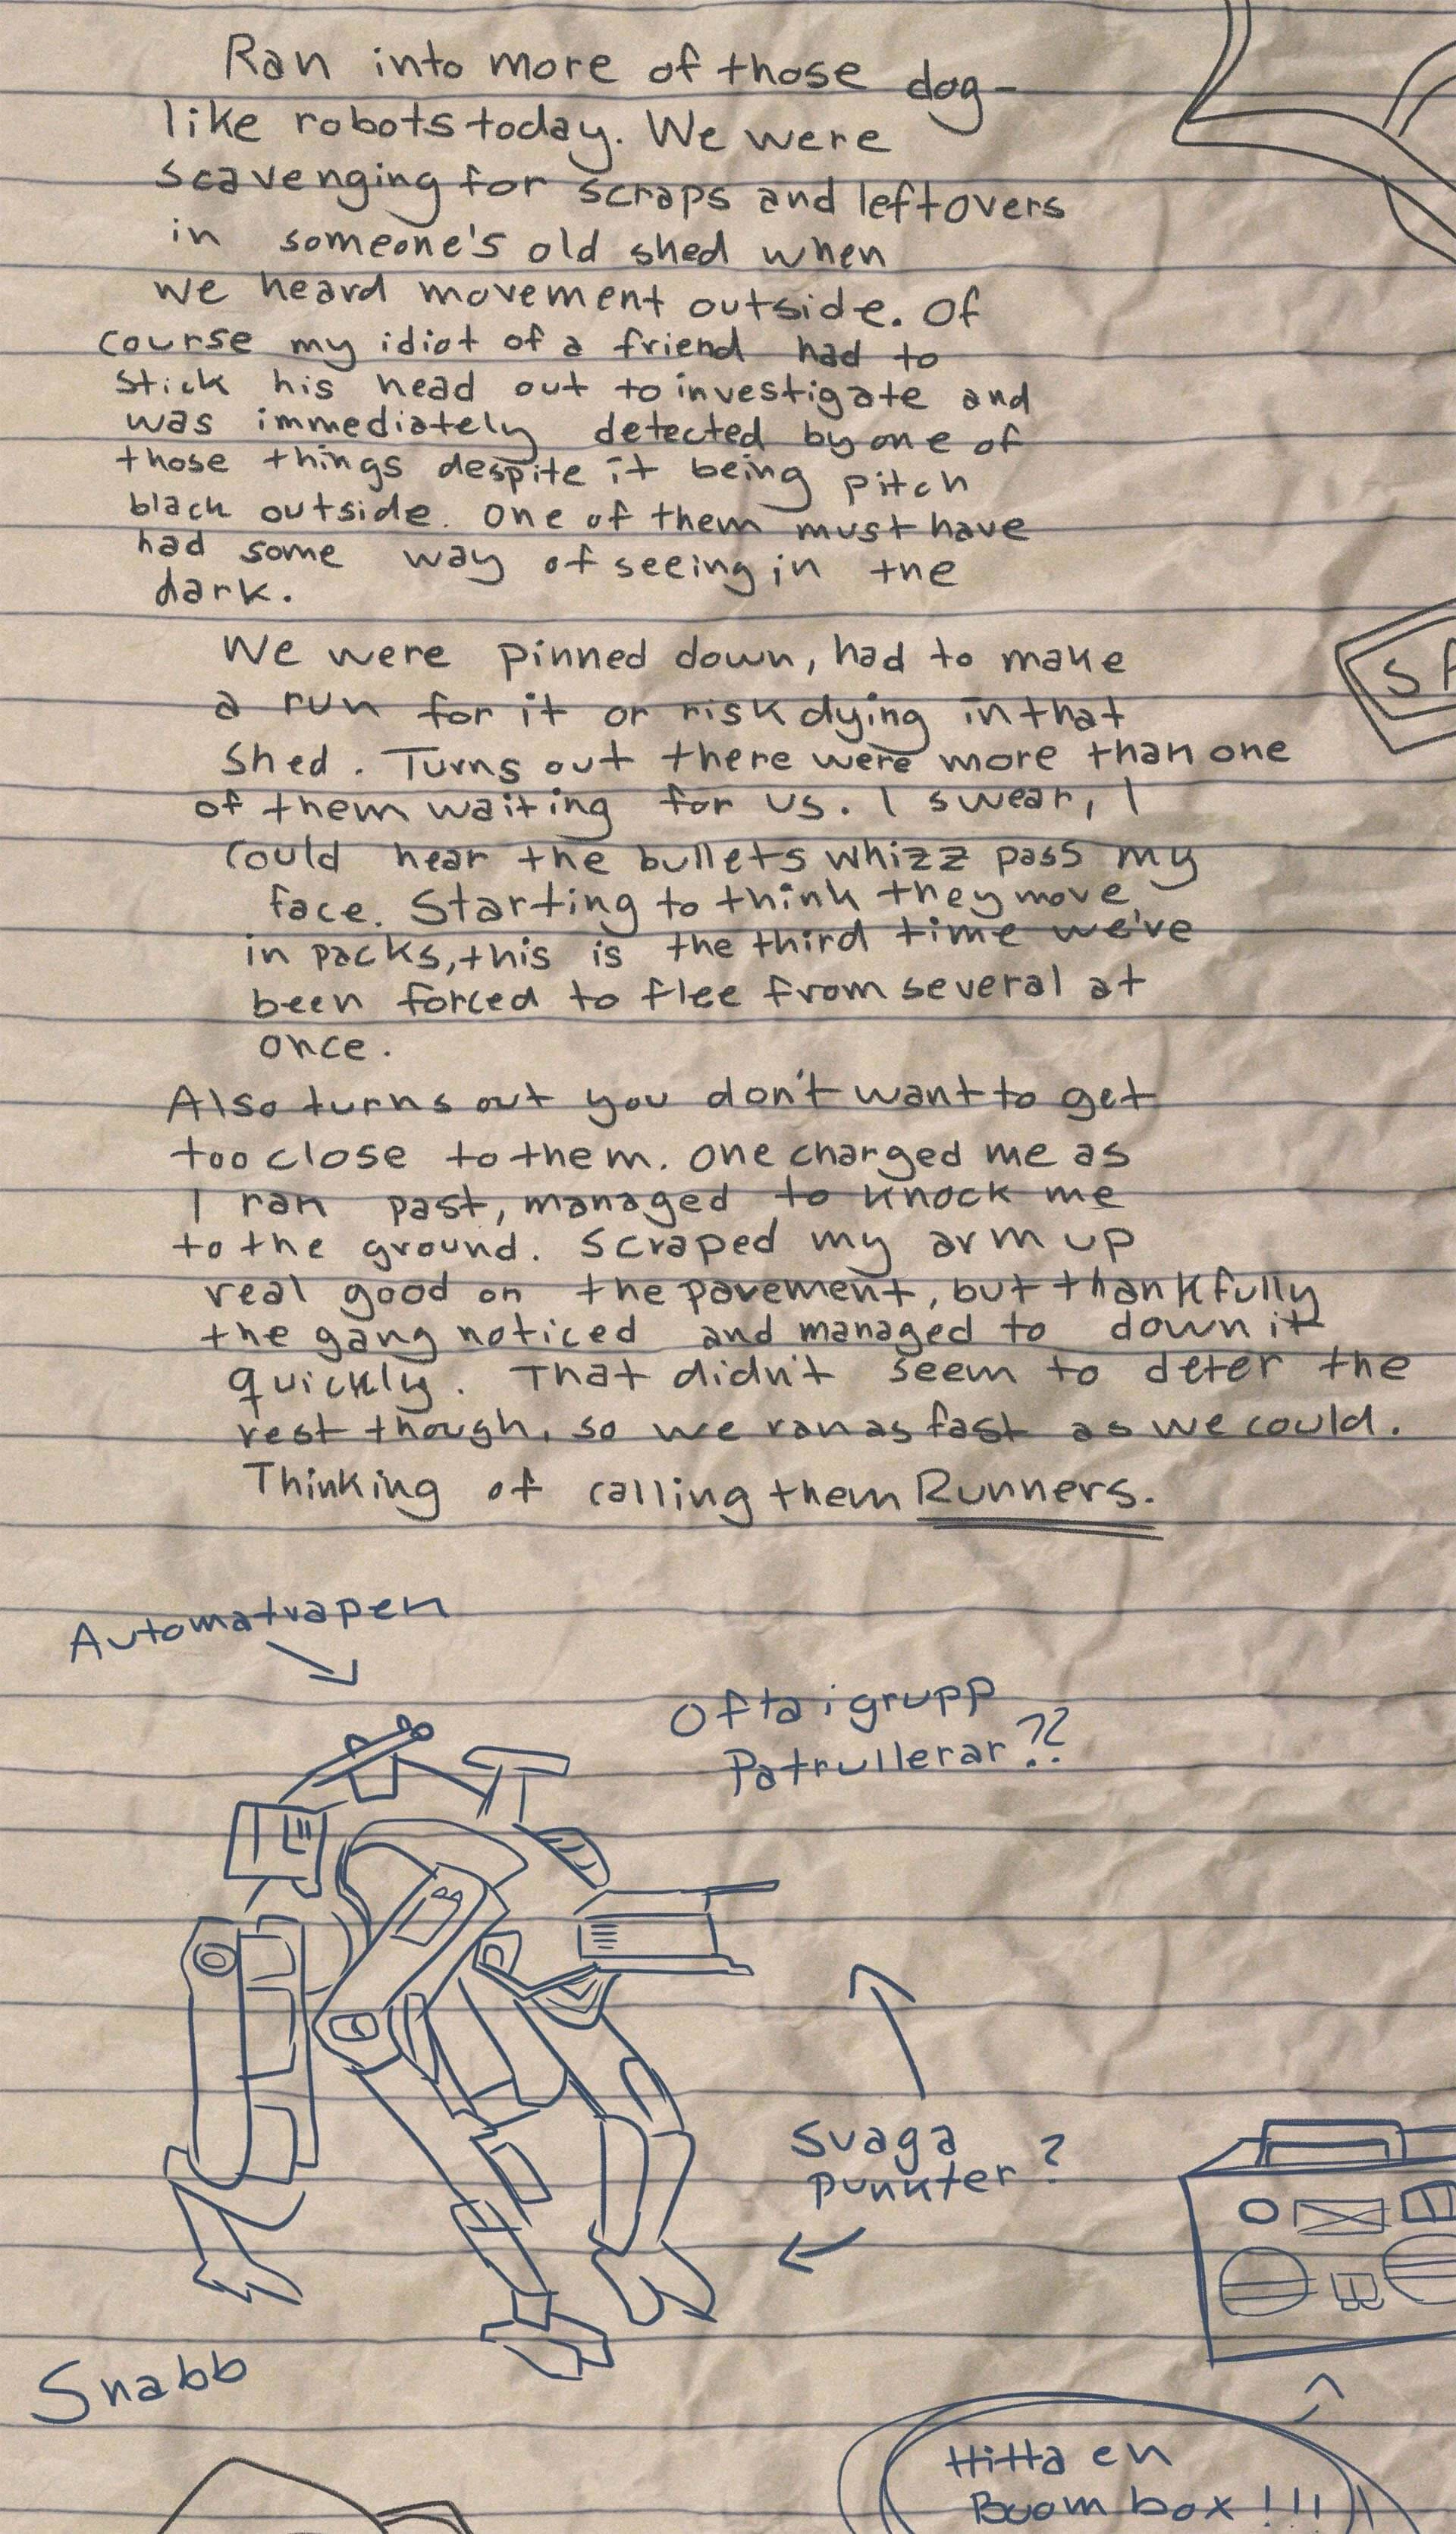 Ran into more of those dog-
like robots today. We were
scavenging for scraps and leftovers
in someone's old shed when
we heard movement outside. Of
course my idiot of a friend had to
stick his head out to investigate and
was immediately detected by one of
those things despite it being pitch
black outside. One of them must have
had some way of seeing in the
dark.
We were pinned down, had to make
a run for it or risk dying in that
shed. Turns out there were more than one
of them waiting for us. I swear, I
could hear the bullets whizz pass my
face. Starting to think they move
in packs, this is the third time we've
been forced to flee from several at
once.
Also turns out you don't want to get
too close to them. One charged me as
I ran past, managed to knock me
to the ground. Scraped my arm up
real good on the pavement, but thankfully
the gang noticed and managed to down it
quickly. That didn't seem to deter the
rest though, so we ran as fast as we could.
Thinking of calling them Runners.
Automatvapen
Ofta i grupp
Patrullerar??
Svaga
punkter?
Snabb
Hitta en
Boombox!!!